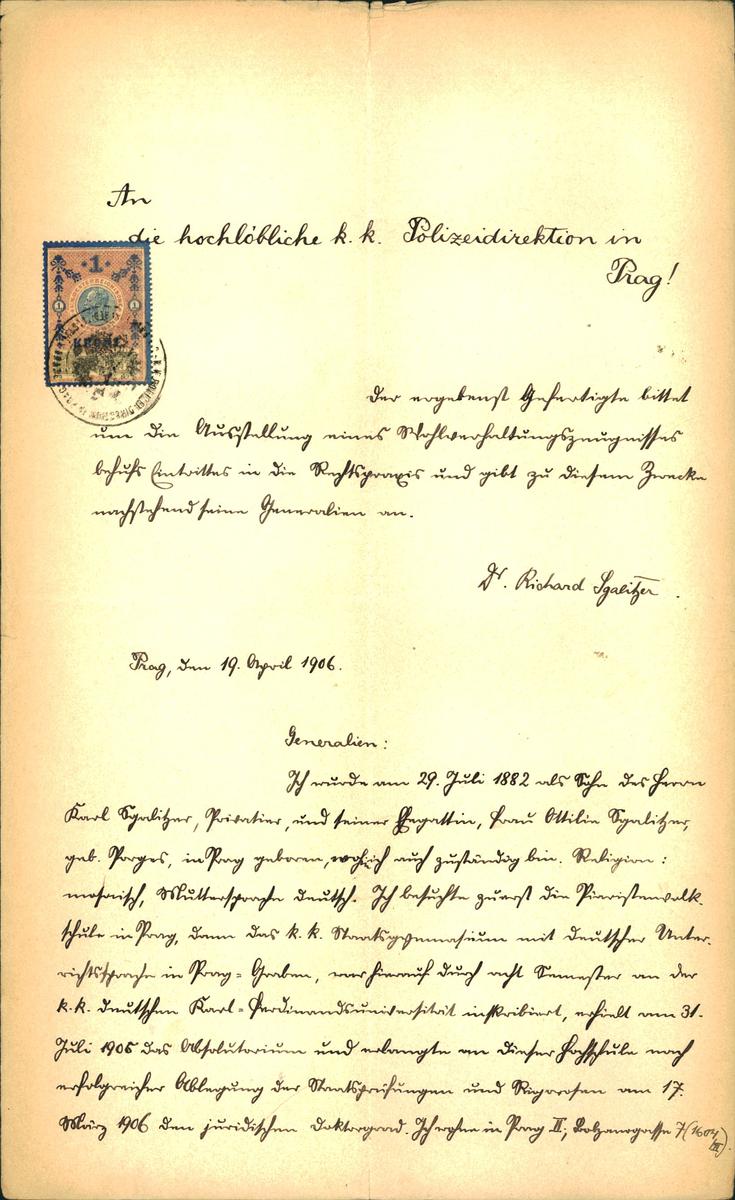 An
die hochlöbliche k. k. Polizeidirektion in
Prag!
1
1 1
KRONE
Der ergebenst Gefertigte bittet
um die Ausstellung eines Wohlverhaltungszeugnisses
behufs Eintrittes in die Rechtspraxis und gibt zu diesem Zwecke
nachstehend seine Generalien an.
Dr. Richard Sgalitzer.
Prag, den 19. April 1906.
Generalien:
Ich wurde am 29. Juli 1882 als Sohn des Herrn
Karl Sgalitzer, Privatier, und seiner Ehegattin, Frau Ottilie Sgalitzer,
geb. Porges, in Prag geboren, wohin ich auch zuständig bin. Religion:
mosaisch, Muttersprache deutsch. Ich besuchte zuerst die Piaristenvolk-
schule in Prag, dann das k. k. Staatsgymnasium mit deutscher Unter-
richtssprache in Prag-Graben, war hierauf durch acht Semester an der
k. k. deutschen Karl-Ferdinandsuniversität inskribiert, erhielt am 31.
Juli 1905 das Absolutorium und erlangte an dieser Hochschule nach
erfolgreicher Ablegung der Staatsprüfungen und Rigorosen am 17.
März 1906 den juridischen Doktorgrad. Ich wohne in Prag II., Bolzanogasse 7 (1604/II).